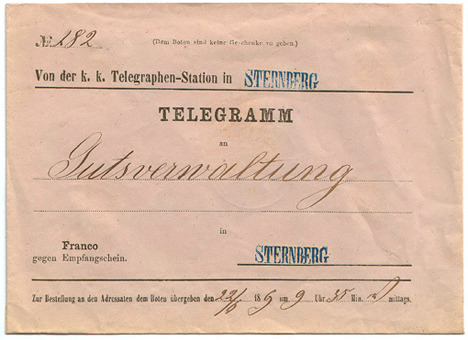 № 182 (Dem Boten sind keine Geschenke zu geben.)
Von der k. k. Telegraphen-Station in STERNBERG
TELEGRAMM
an
Gutsverwaltung
in
Franco
gegen Empfangschein. STERNBERG
Zur Bestellung an den Adressaten dem Boten übergeben den 22/6 1869 um 9 Uhr 35 Min. mittags.